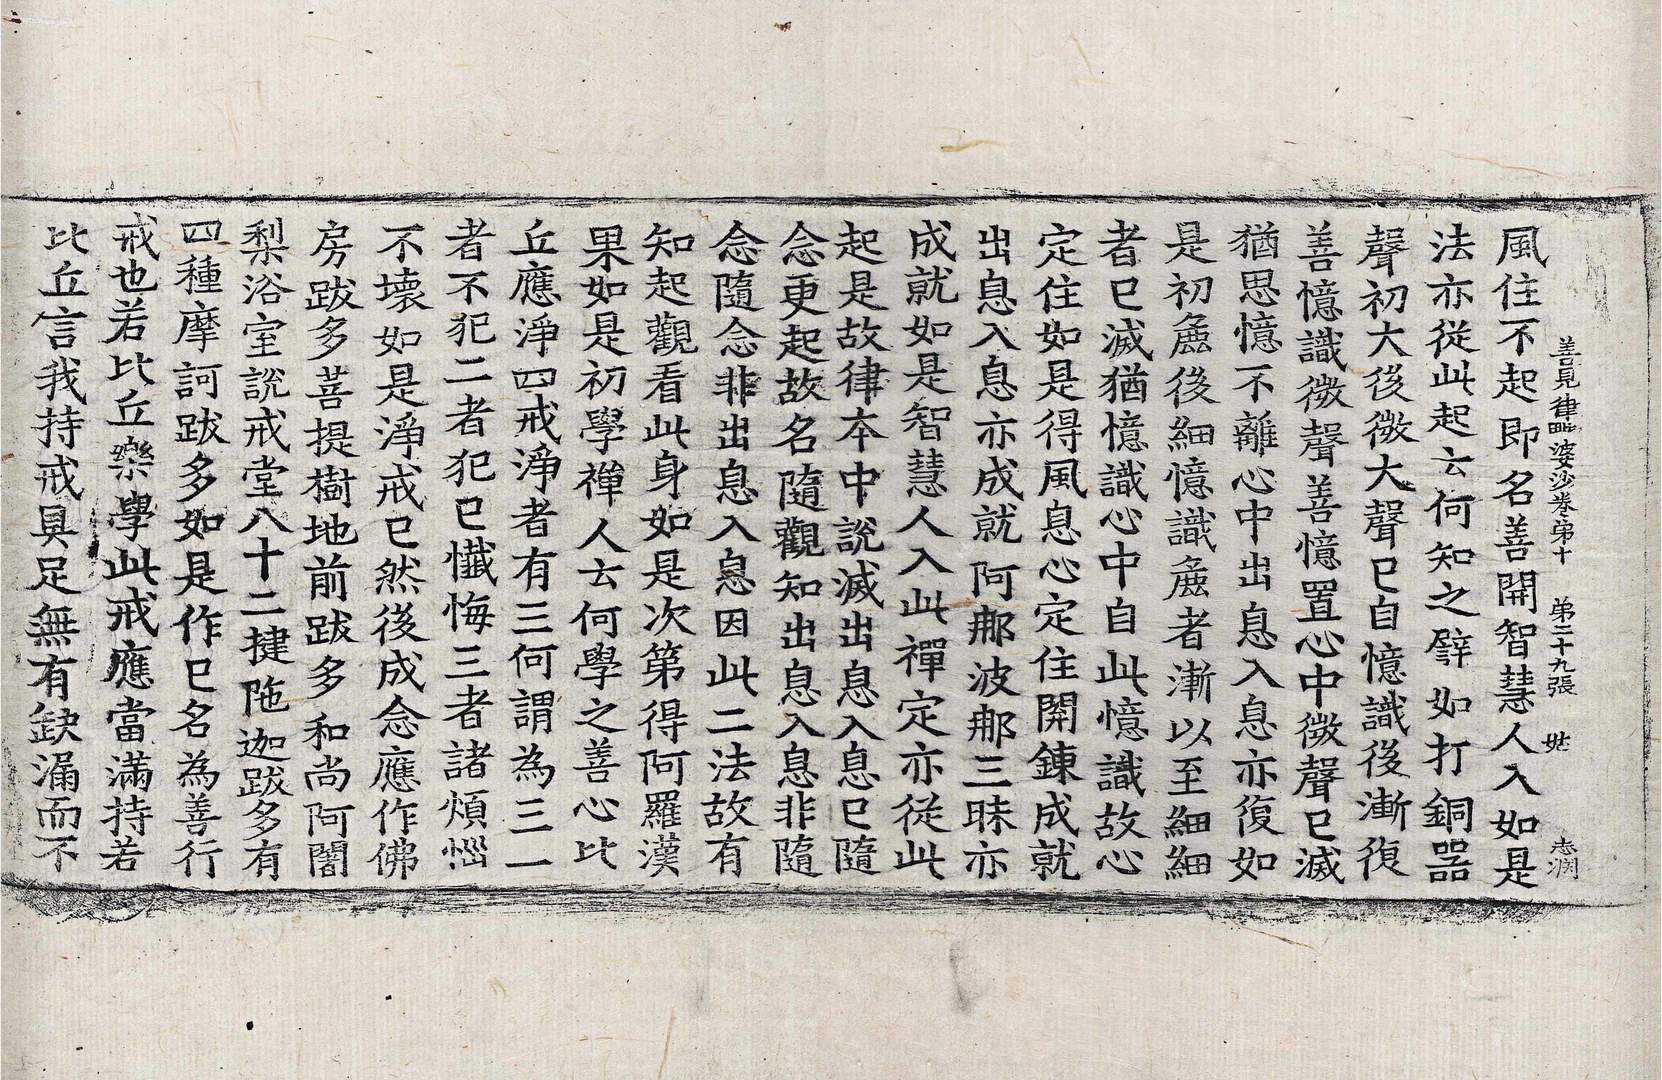 善見律毗婆沙卷第十 第二十九張 姑 志潤
風住不起即名善開智慧人入如是
法亦從此起云何知之譬如打銅器
聲初大後微大聲已自憶識後漸復
善憶識微聲善憶置心中微聲已滅
猶思憶不離心中出息入息亦復如
是初麁後細憶識麁者漸以至細細
者已滅猶憶識心中自此憶識故心
定住如是得風息心定住開鍊成就
出息入息亦成就阿那波那三昧亦
成就如是智慧人入此禪定亦從此
起是故律本中說滅出息入息已隨
念更起故名隨觀知出息入息非隨
念隨念非出息入息因此二法故有
知起觀看此身如是次第得阿羅漢
果如是初學禪人云何學之善心比
丘應淨四戒淨者有三何謂為三一
者不犯二者犯已懺悔三者諸煩惱
不壞如是淨戒已然後成念應作佛
房跋多菩提樹地前跋多和尚阿闍
梨浴室說戒堂八十二揵陁迦跋多有
四種摩訶跋多如是作已名為善行
戒也若比丘樂學此戒應當滿持若
比丘言我持戒具足無有缺漏而不